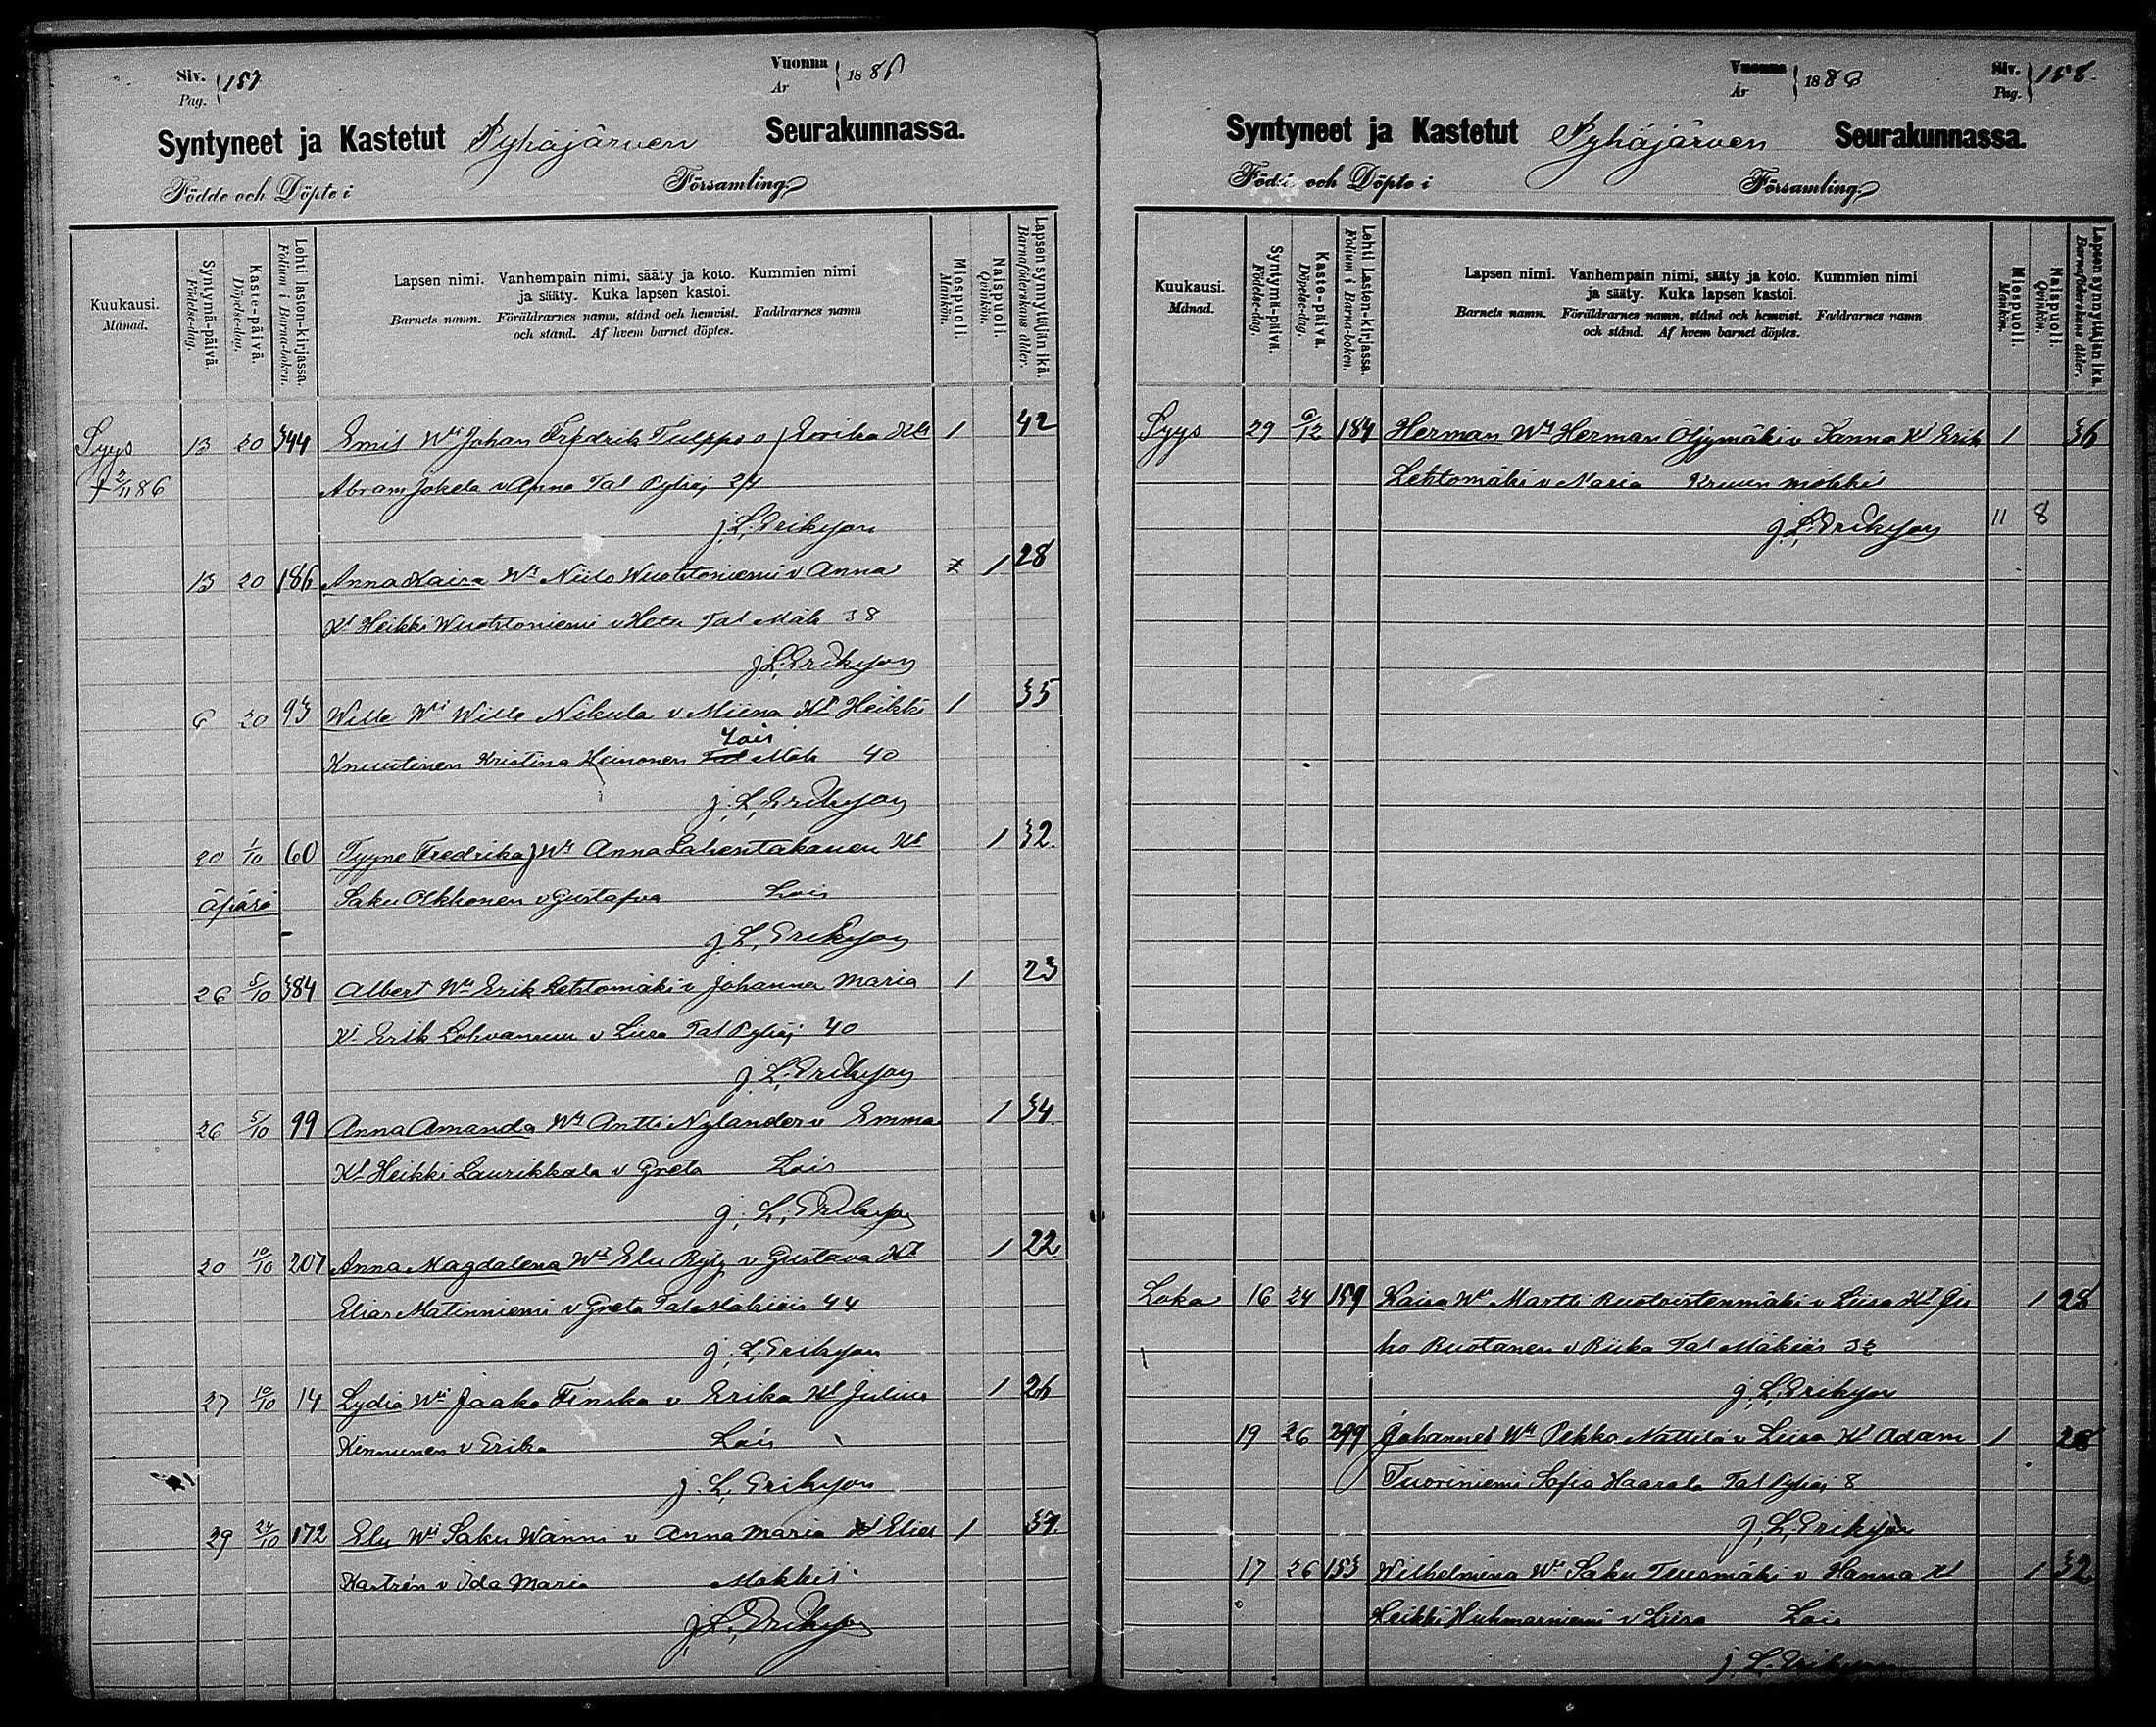 Siv. Pag. 157
Vuonna År 1886
Syntyneet ja Kastetut Pyhäjärven Seurakunnassa.
Födde och Döpte i Församling.
Kuukausi. Månad.
Syntymä-päivä. Födelse-dag.
Kaste-päivä. Döpelse-dag.
Lehti lasten-kirjassa. Folium i Barna-boken.
Lapsen nimi. Vanhempain nimi, sääty ja koto. Kummien nimi
ja sääty. Kuka lapsen kastoi.
Barnets namn. Föräldrarnes namn, stånd och hemvist. Faddrarnes namn
och stånd. Af hvem barnet döptes.
Miespuoli. Mankön.
Naispuoli. Qvinkön.
Lapsen synnyttäjän ikä. Barnaföderskans ålder.
Syys 13 20 344 Emil Wt Johan Fredrik Tulppo o Eerika Kt 1 42
† 2/11 86 Abram Jokela v Anna Tal Pyhäj 24
J. L. Erikson
13 20 186 Anna Kaisa Wt Niilo Wuohtoniemi v Anna 1 28
Kt Heikki Wuohtoniemi v Heta Tal Mäk 38
J. L. Erikson
6 20 93 Wille Wt Wille Nikula v Miina Kt Heikki 1 35
Knuutinen Kristina Heinonen Lois Mäk 40
J. L. Erikson
20 1/10 60 Tyyne Fredrika Wt Anna Lahentakanen Kt 1 32.
äpärä Saku Okkonen v Gustafva Lois
J. L. Erikson
26 5/10 384 Albert Wt Erik Lehtomäki v Johanna Maria 1 23
Kt Erik Lohvansuu v Liisa Tal Pyhäj 40
J. L. Erikson
26 5/10 99 Anna Amanda Wt Antti Nylander v Emma 1 34.
Kt Heikki Laurikkala v Greta Lois
J. L. Erikson
20 10/10 207 Anna Magdalena Wt Elu Ryty v Gustava Kt 1 22.
Elias Matinniemi v Greta Tal Mäkiöis 44
J. L. Erikson
27 10/10 14 Lydia Wt Jaako Finska v Erika Kt Julius 1 26
Kinnunen v Erika Lois
J. L. Erikson
29 24/10 172 Elu Wt Saku Wänni v Anna Maria Kt Elias 1 37.
Kastrén v Ida Maria Mökkil
J. L. Erikson
Vuonna År 1886
Siv. Pag. 158.
Syntyneet ja Kastetut Pyhäjärven Seurakunnassa.
Födde och Döpte i Församling.
Kuukausi. Månad.
Syntymä-päivä. Födelse-dag.
Kaste-päivä. Döpelse-dag.
Lehti Lasten-kirjassa. Folium i Barna-boken.
Lapsen nimi. Vanhempain nimi, sääty ja koto. Kummien nimi
ja sääty. Kuka lapsen kastoi.
Barnets namn. Föräldrarnes namn, stånd och hemvist. Faddrarnes namn
och stånd. Af hvem barnet döptes.
Miespuoli. Mankön.
Naispuoli. Qvinkön.
Lapsen synnyttäjän ikä. Barnaföderskans ålder.
Syys 29 6/12 184 Herman Wt Herman Öljymäki v Sanna Kt Erik 1 36
Lehtomäki v Maria Kruun mökkil
J. L. Erikson 11 8
Loka 16 24 159 Kaisa Wt Martti Ruotoistenmäki v Liisa Kt Ju 1 28
ho Ruotanen v Riika Tal Mäkiöis 32
J. L. Erikson
19 26 299 Johannes Wt Pekko Nattila v Liisa Kt Adam 1 28
Tuoriniemi Sofia Haarala Tal Pyhäj 8
J. L. Erikson
17 26 153 Wilhelmina Wt Saku Tuomäki v Hanna Kt 1 32
Heikki Huhmarniemi v Liisa Lois
J. L. Erikson